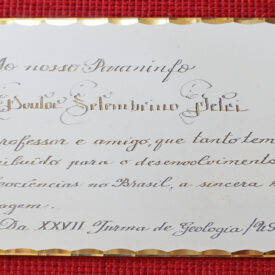 Ao nosso Paraninfo
Doutor Setembrino Petri
professor e amigo, que tanto tem
tribuído para o desenvolvimento
eociências no Brasil, a sincera h
agem.
Da XXVII Turma de Geologia /US